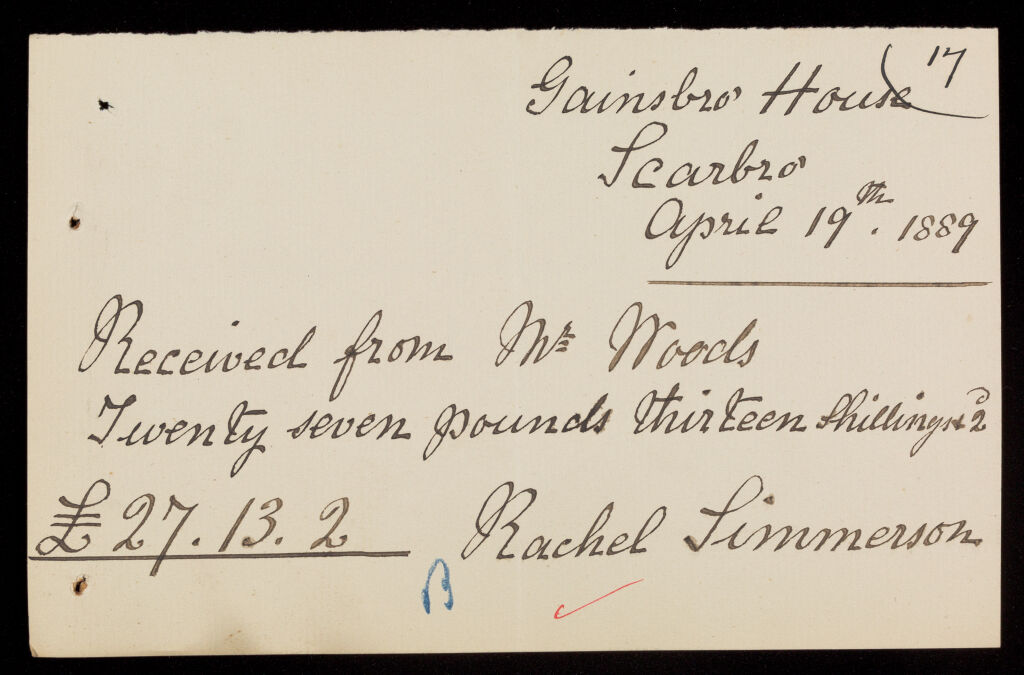 17
Gainsbro House
Scarbro
April 19th. 1889
Received from Mr Woods
Twenty seven pounds thirteen Shillings & 2d
£27.13.2 Rachel Simmerson
B